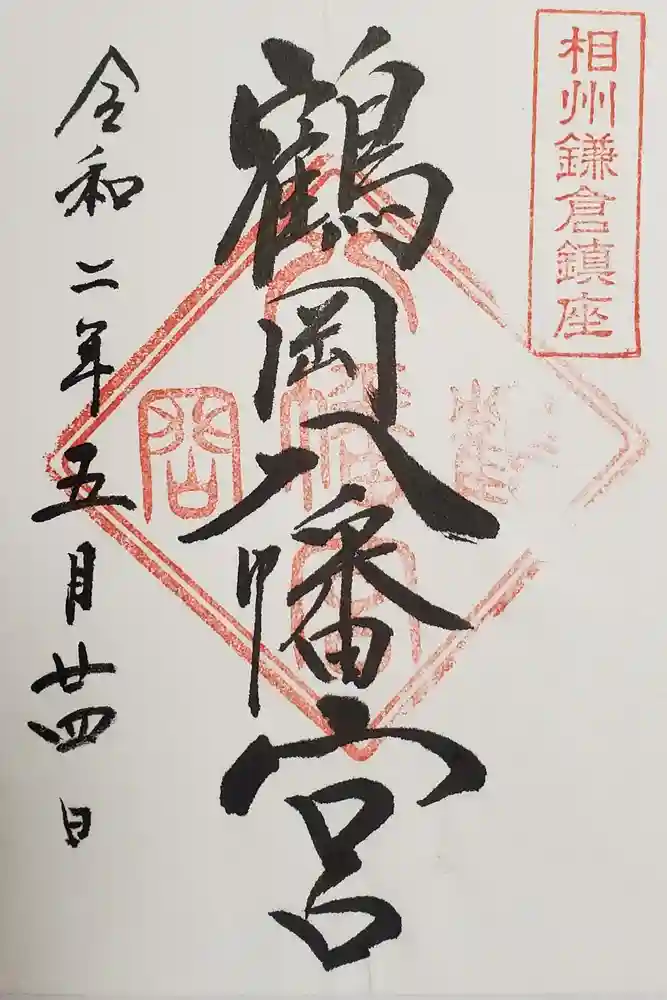 相州鎌倉鎮座
鶴岡八幡宮
令和二年五月廿四日